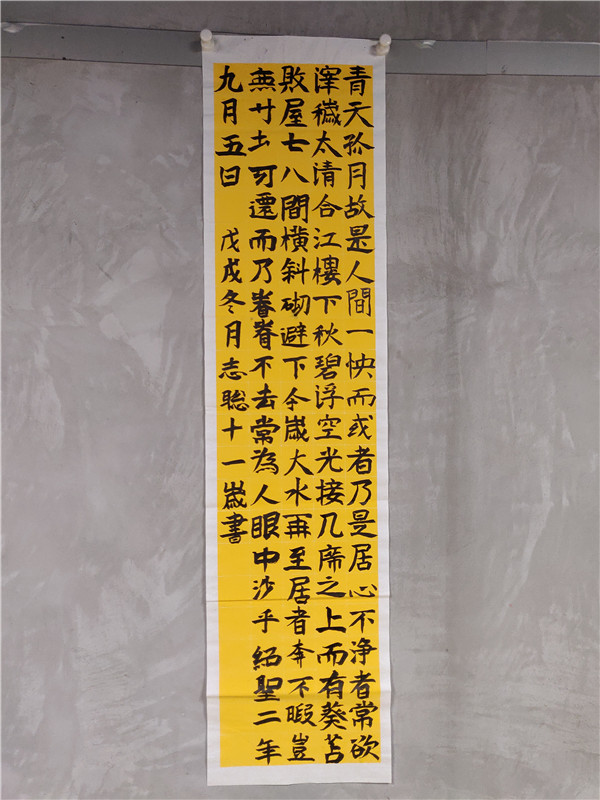 青天孤月故是人間一快而或者乃是居心不淨者常欲
滓穢太清合江樓下秋碧浮空光接几席之上而有葵苫
敗屋七八間橫斜砌避下今歲大水再至居者奔不暇豈
無寸土可遷而乃眷眷不去常為人眼中沙乎紹聖二年
九月五日 戊戌冬月志聡十一歲書